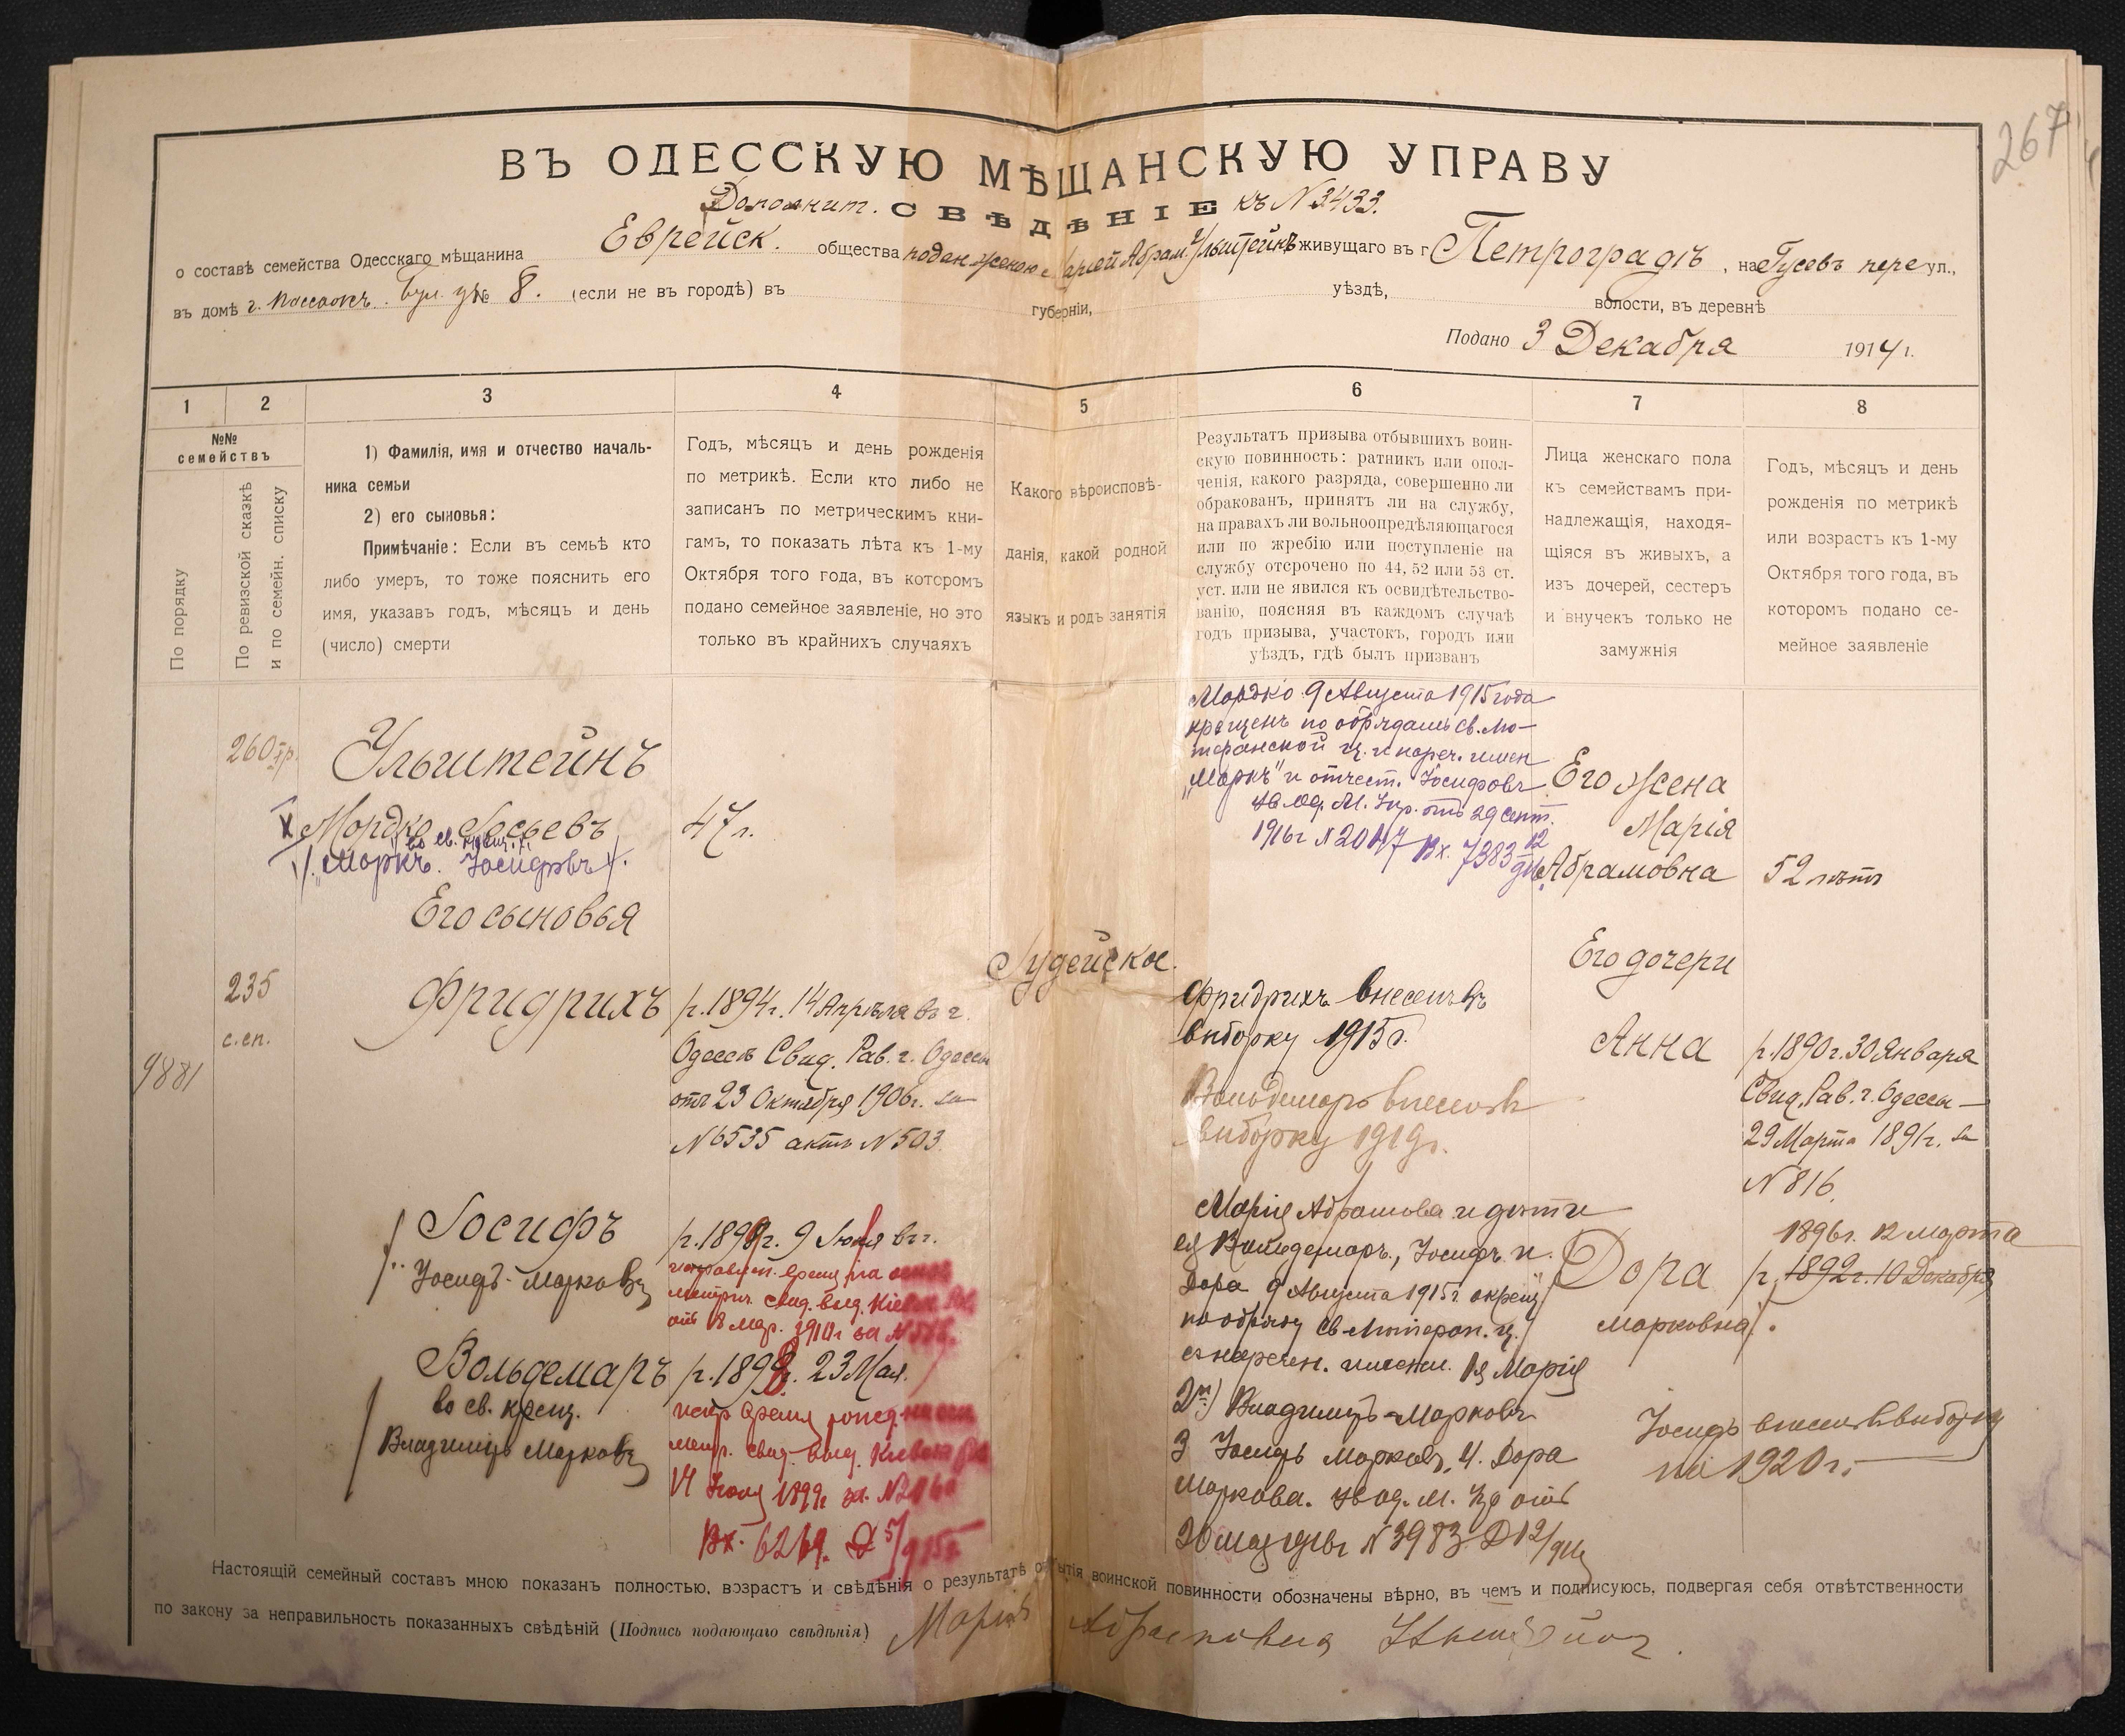 267
ВЪ ОДЕССКУЮ МѢЩАНСКУЮ УПРАВУ
Дополнит. СВѢДѢНІЕ къ № 3433.
о составѣ семейства Одесскаго мѣщанина Еврейск. общества подан женою Маріей Абрам. Ульштейнъ живущаго въ г Петроградѣ, на Гусевъ пере ул.,
въ домѣ № 8. (если не въ городѣ) въ губерніи, уѣздѣ, волости, въ деревнѣ
Подано 3 Декабря 1914 г.
1 2 3 4 5 6 7 8
№№ семействъ
По порядку
По ревизской сказкѣ
и по семейн. списку
1) Фамилія, имя и отчество началь-
ника семьи
2) его сыновья:
Примѣчаніе: Если въ семьѣ кто
либо умеръ, то тоже пояснить его
имя, указавъ годъ, мѣсяцъ и день
(число) смерти
Годъ, мѣсяцъ и день рожденія
по метрикѣ. Если кто либо не
записанъ по метрическимъ кни-
гамъ, то показать лѣта къ 1-му
Октября того года, въ котсромъ
подано семейное заявленіе, но это
только въ крайнихъ случаяхъ
Какого вѣроисповѣ-
данія, какой родной
языкъ и родъ занятія
Результатъ призыва отбывшихъ воин-
скую повинность: ратникъ или опол-
ченія, какого разряда, совершенно ли
обракованъ, принятъ ли на службу,
на правахъ ли вольноопредѣляющагося
или по жребію или поступленіе на
службу отсрочено по 44, 52 или 53 ст.
уст. или не явился къ освидѣтельство-
ванію, поясняя въ каждомъ случаѣ
годъ призыва, участокъ, городъ или
уѣздъ, гдѣ былъ призванъ
Лица женскаго пола
къ семействамъ при-
надлежащія, находя-
щіяся въ живыхъ, а
изъ дочерей, сестеръ
и внучекъ только не
замужнія
Годъ, мѣсяцъ и день
рожденія по метрикѣ
или возрастъ къ 1-му
Октября того года, въ
которомъ подано се-
мейное заявленіе
260
Ульштейнъ
Мордко Іосьевъ
во св. крещ.
"Маркъ. Іосифовъ"
47 г.
Его сыновья
235
с. сп.
9881
Фридрихъ
р. 1894 г. 14 Апрѣля въ г.
Одессѣ Свид. Рав. г. Одессы
отъ 23 Октября 1906 г. за
№ 6535 актъ № 503.
Іосифъ
Іосифъ-Марковъ
р. 1898 г. 9 Іюля въ г.
исправлен. время на основ
метрич. свид. выд.
Вольдемаръ
во св. крещ.
Владиміръ Марковъ
р. 1898. 23 Мая.
метр. свид. выд.
14 Іюля 1899 г. за №
Вх. 6269.
Іудейское.
Мордко 9 Августа 1915 года
крещенъ по обрядамъ св. Лю-
теранской ц. и нареч. имен
"Маркъ" и отчест. Іосифовъ
Ув. Од. М. Упр. отъ 29 сент.
1916 г № 2047 Вх. 7383
Фридрихъ внесенъ въ
выборку 1915 г.
Вольдемаръ внесенъ въ
выборку 1919 г.
Марія Абрамова и дѣти
ея Вольдемаръ, Іосифъ и
Дора 9 Августа 1915 г. окрещ.
по обряду Св. Лютеран. ц.
съ наречен. именами. 1я Марія
2й) Владиміръ-Марковъ
3 Іосифъ Марковъ, 4. Дора
Маркова. Ув од. М. Уп отъ
20 мая 1916 г № 3983
Его жена
Марія
Абрамовна
52 лѣтъ
Его дочери
Анна
р. 1890 г. 30 Января
Свид. Рав. г. Одессы
29 Марта 1891 г. за
№ 816.
Дора
Марковна
1896 г. 12 марта
р. 1892 г. 10 Декабря
Іосифъ внесенъ въ выборку
на 1920 г.
Настоящій семейный составъ мною показанъ полностью, возрастъ и свѣдѣнія о результатѣ отбытія воинской повинности обозначены вѣрно, въ чемъ и подписуюсь, подвергая себя отвѣтственности
по закону за неправильность показанныхъ свѣдѣній (Подпись подающаго свѣдѣнія) Марія Абрамовна Ульштейнъ.